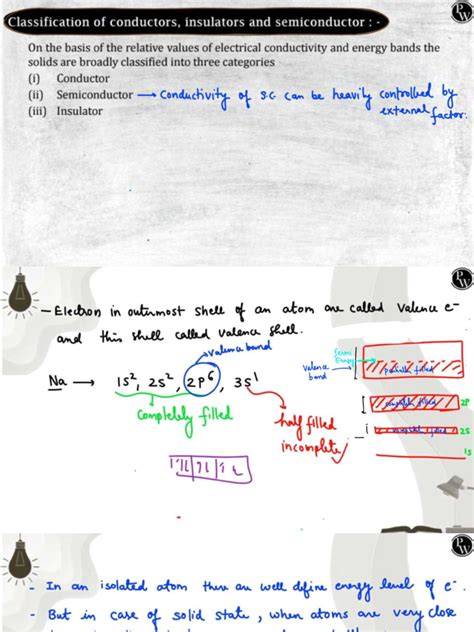 Classification of conductors, insulators and semiconductor : -
On the basis of the relative values of electrical conductivity and energy bands the
solids are broadly classified into three categories
(i) Conductor
(ii) Semiconductor → Conductivity of S.C. can be heavily controlled by
external factor.
(iii) Insulator
- Electron in outermost shell of an atom are called Valence e⁻
and this shell called valence shell.
valence band
Na → 1S², 2S², 2P⁶, 3S¹
Completely filled
half filled
incomplete
Fermi
Energy
Valence
band
partially filled
2P
2S
1S
- In an isolated atom there are well define energy level of e⁻.
- But in case of solid state, when atoms are very close